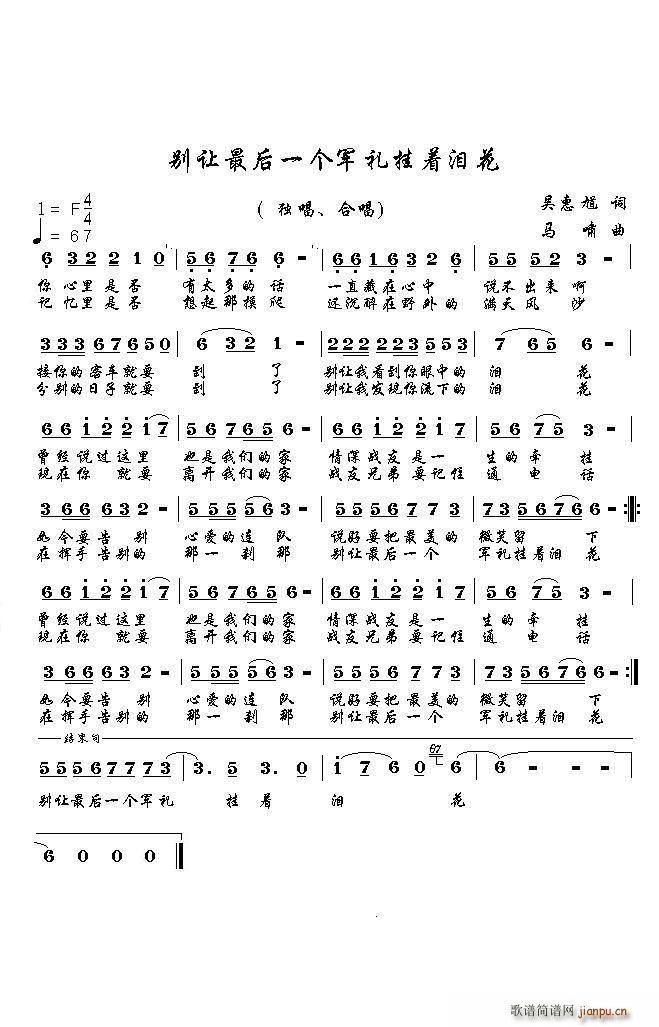 别让最后一个军礼挂着泪花
1= F 4/4
( 独唱、合唱)
吴惠馗 词
♩ = 67
马 啸 曲
6 3 2 2 1 0 | 5 6 7 6 6 - | 6 6 1 6 3 3 2 0 2 | 5 5 6 7 6 - |
你 心里是否 有太多的话 一直藏在心中 说不出来啊
记 忆里是否 想起那摸爬 还沉醉在野外的 满天风沙
3 3 3 3 6 7 6 5 0 | 6 3 2 1 - | 2 2 2 2 2 3 5 5 3 | 7 6 5 6 - |
接你的客车就要 到 了 别让我看到你眼中的 泪 花
分别的日子就要 到 了 别让我发现你流下的 泪 花
6 6 i 2 2 i 7 | 5 6 7 6 5 6 - | 6 6 7 5 5 6 7 6 | 5 6 7 5 3 - |
曾经说过这里 也是我们的家 情深战友是一 生的牵挂
现在你 就要 离开我们的家 战友兄弟要记住 通 电 话
3 6 6 6 6 3 2 - | 5 5 5 5 6 3 - | 5 5 5 6 7 6 6 7 | 7 3 5 6 7 6 6 - :||:
如今要告 别 心爱的连队 说好要把最美的 微笑留 下
在挥手告别的 那一刹那 别让最后一个 军礼挂着泪花
6 6 i 2 2 i 7 | 5 6 7 6 5 6 - | 6 6 7 5 5 6 7 6 | 5 6 7 5 3 - |
曾经说过这里 也是我们的家 情深战友是一 生的牵挂
现在你 就要 离开我们的家 战友兄弟要记住 通 电 话
3 6 6 6 6 3 2 - | 5 5 5 5 6 3 - | 5 5 5 6 7 6 6 7 | 7 3 5 6 7 6 6 - :||
如今要告 别 心爱的连队 说好要把最美的 微笑留 下
在挥手告别的 那一刹那 别让最后一个 军礼挂着泪花
结束句
5 5 5 6 7 7 7 3 | 3 . 5 3 . 0 | i 7 6 0 67 6 | 6 - - - |
别让最后一个军礼 挂 着 泪 花
6 0 0 0 ||
歌谱简谱网
jianpu.cn